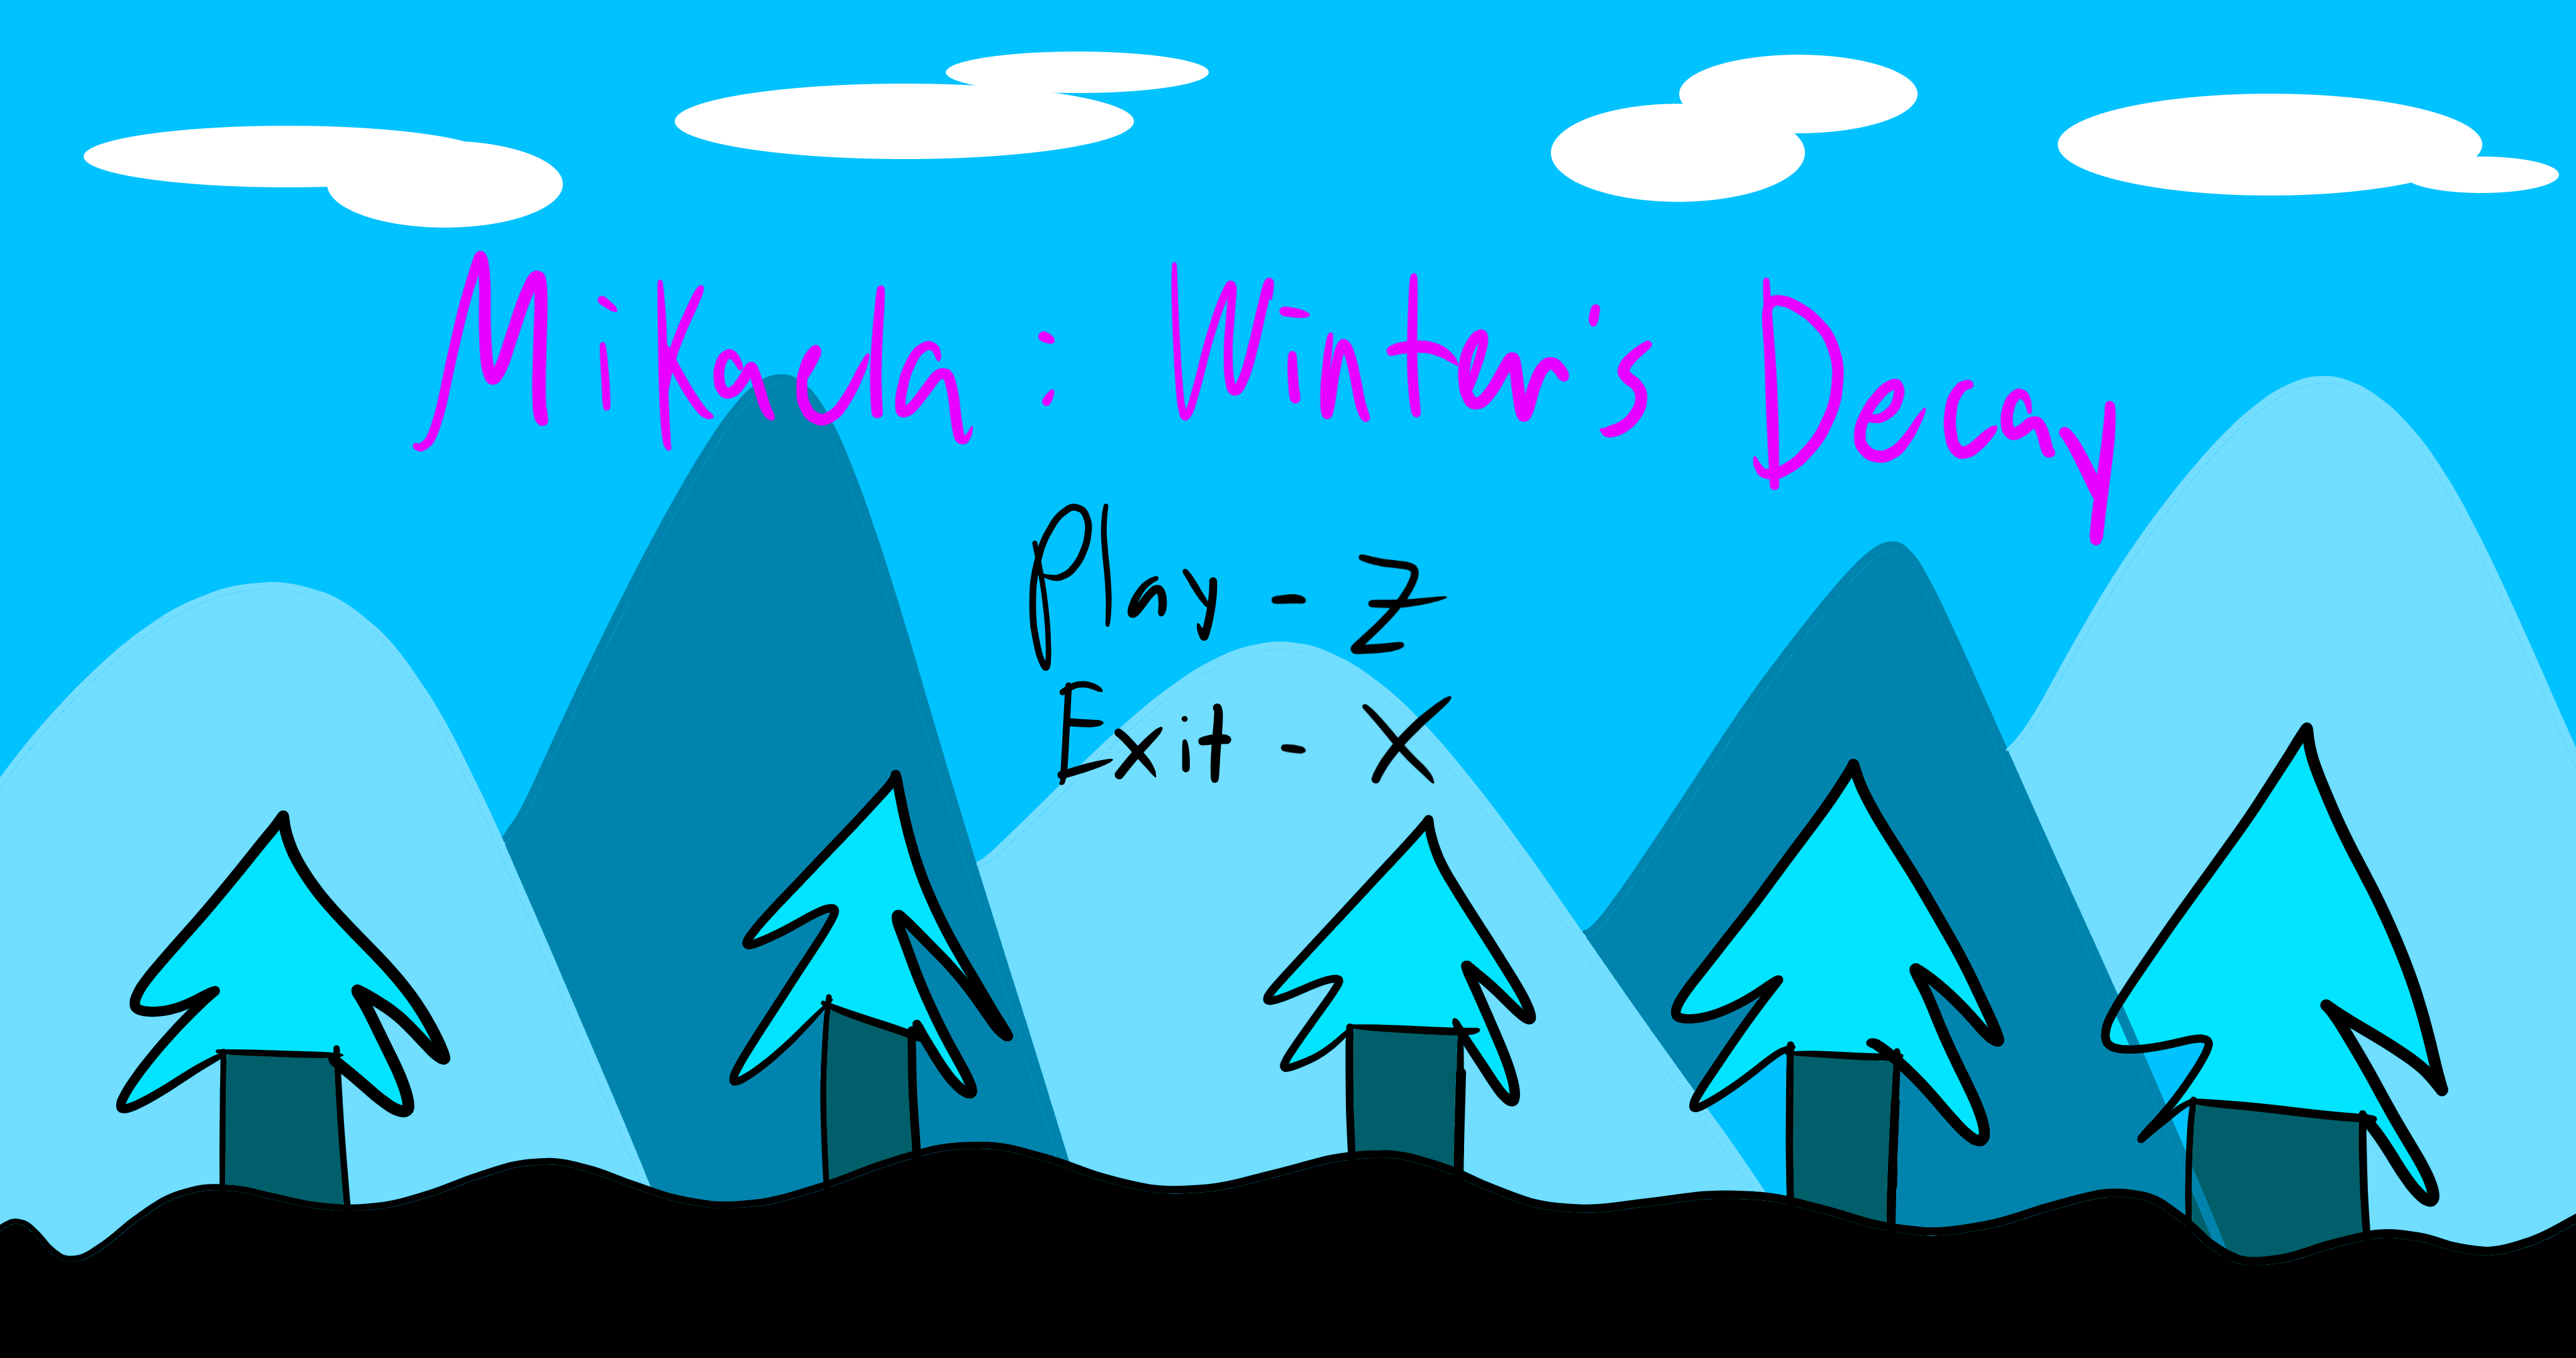 Mikaela: Winter's Decay
Play - Z
Exit - X